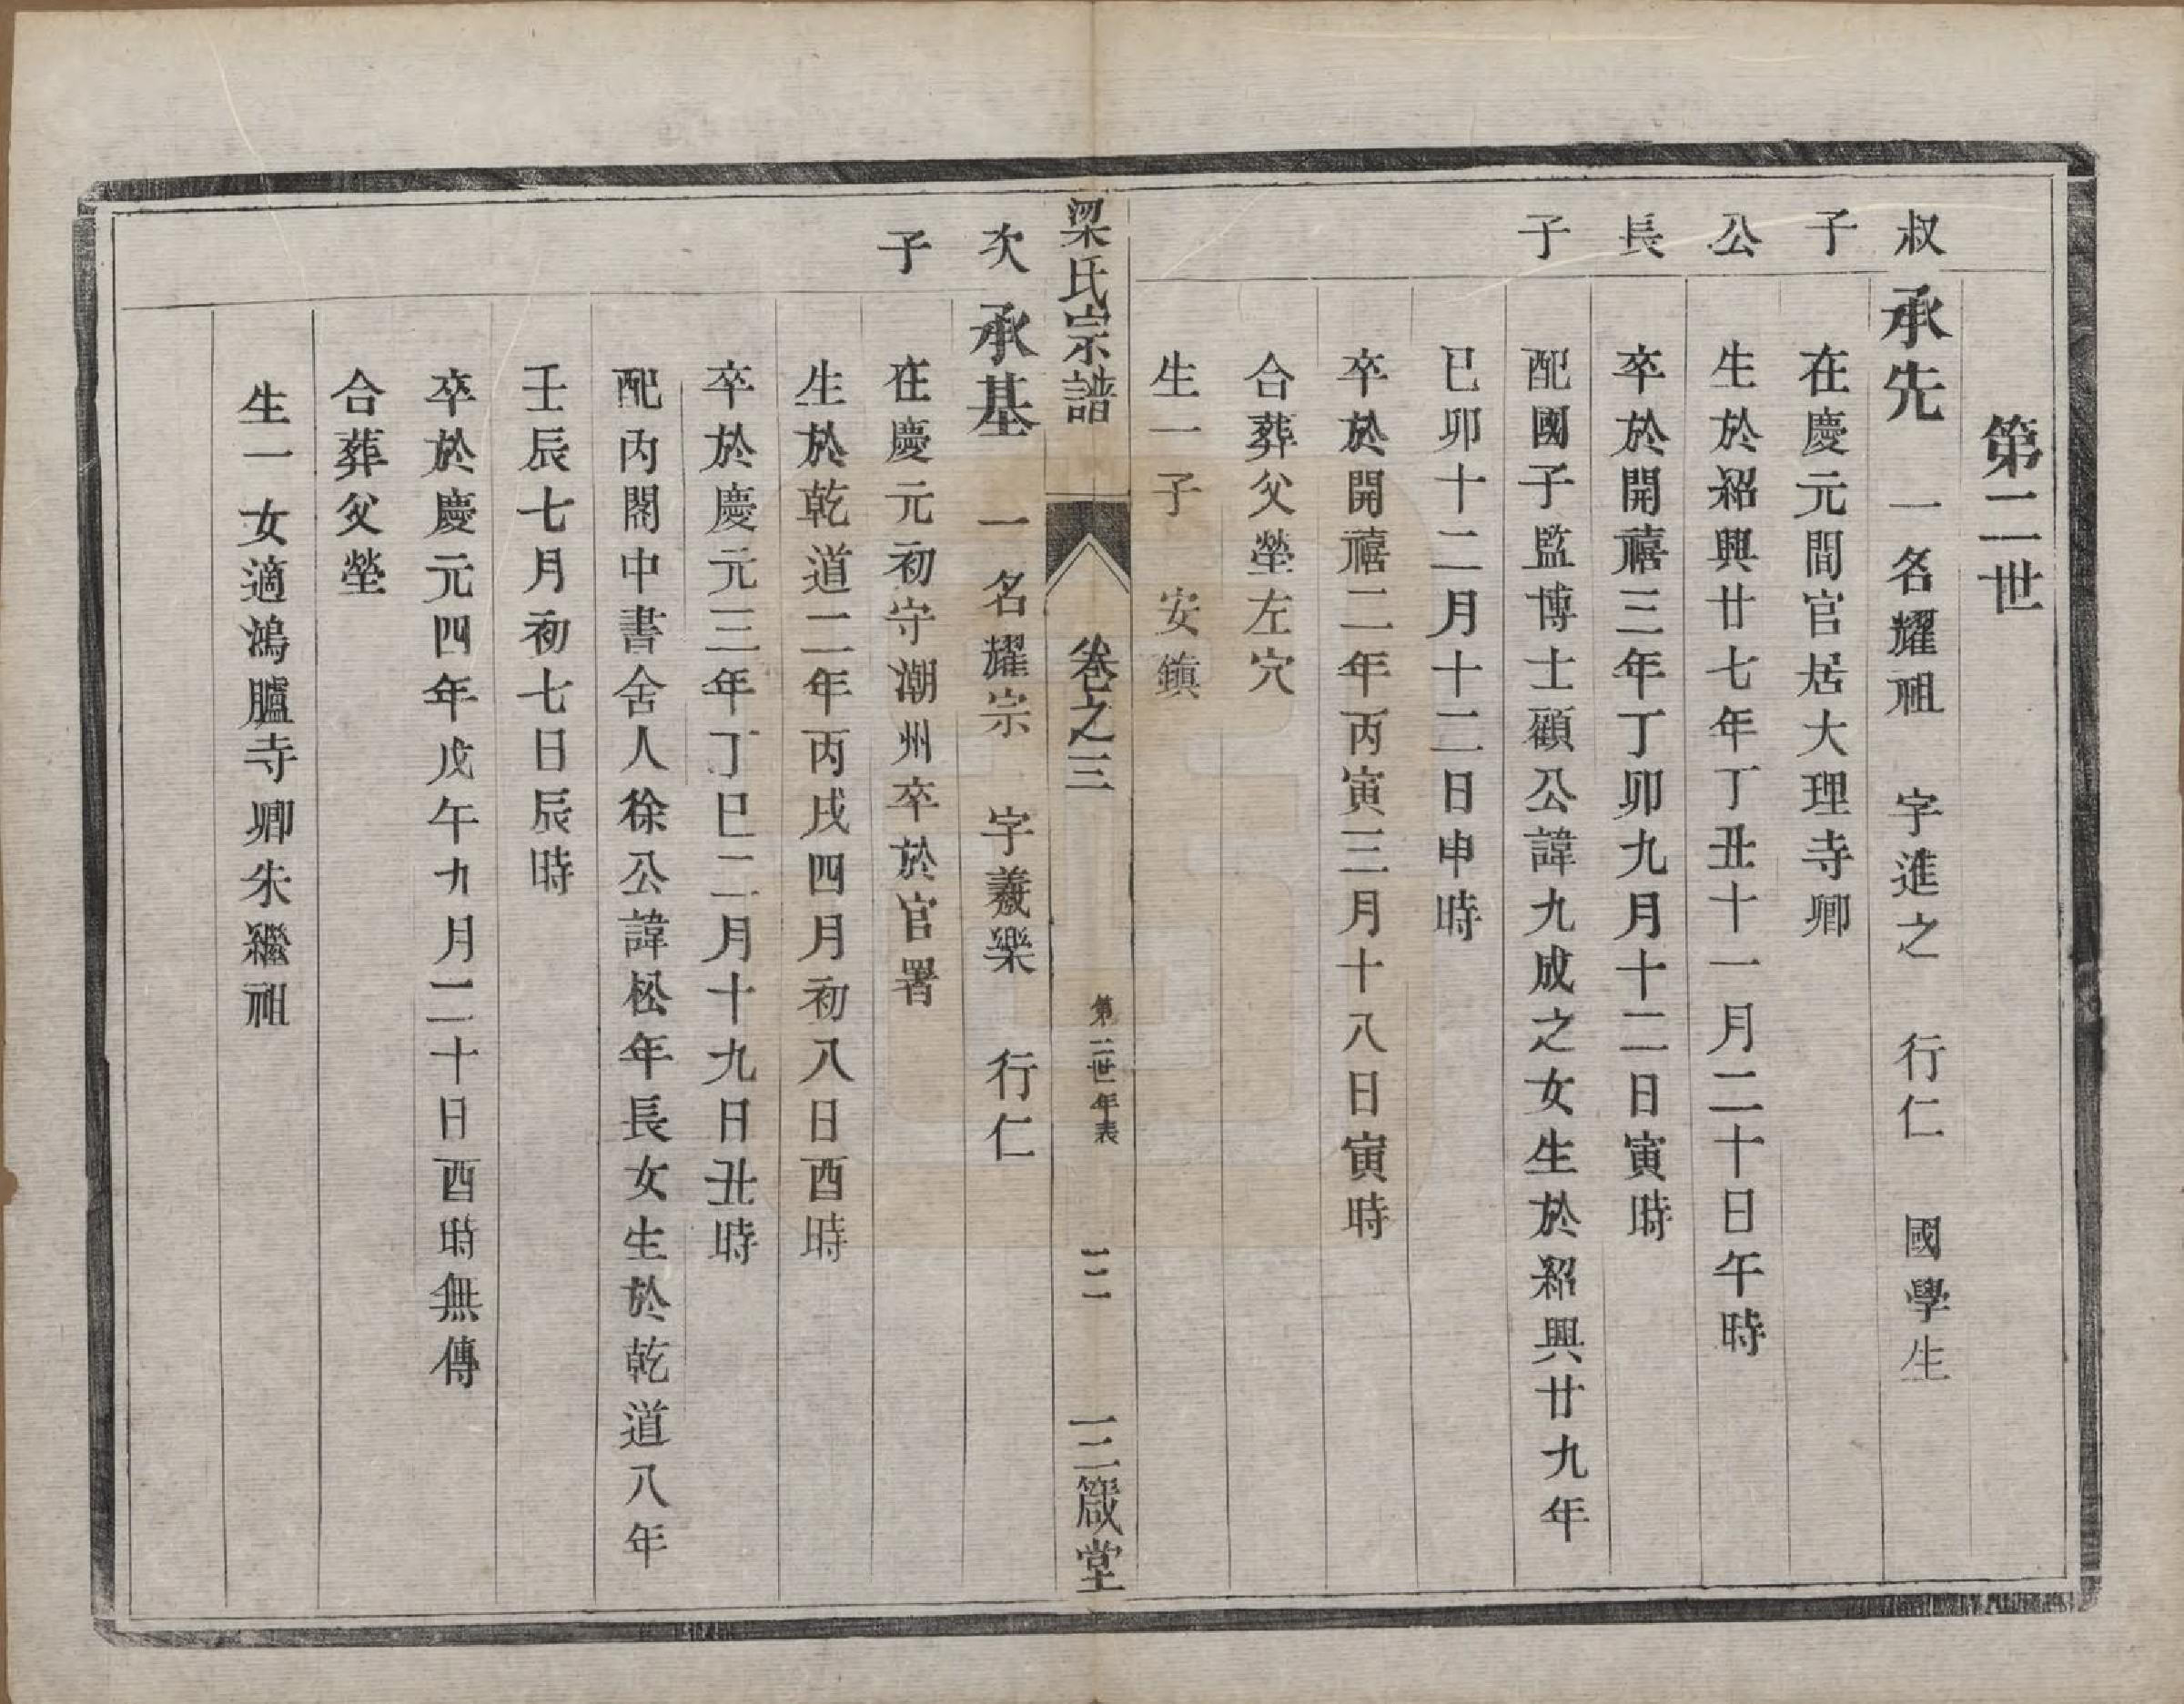 第二世
叔子公長子
承先　一名耀祖　字進之　行仁　國學生
在慶元間官居大理寺卿
生於紹興廿七年丁丑十一月二十日午時
卒於開禧三年丁卯九月十二日寅時
配國子監博士顧公諱九成之女生於紹興廿九年
已卯十二月十二日申時
卒於開禧二年丙寅三月十八日寅時
合葬父塋左穴
生一子　安鎮
梁氏宗譜　卷之三　第二世年表　三　三箴堂
次子
承基　一名耀宗　字羲樂　行仁
在慶元初守潮州卒於官署
生於乾道二年丙戌四月初八日酉時
卒於慶元三年丁巳二月十九日丑時
配內閣中書舍人徐公諱松年長女生於乾道八年
壬辰七月初七日辰時
卒於慶元四年戊午九月二十日酉時無傳
合葬父塋
生一女適鴻臚寺卿朱繼祖